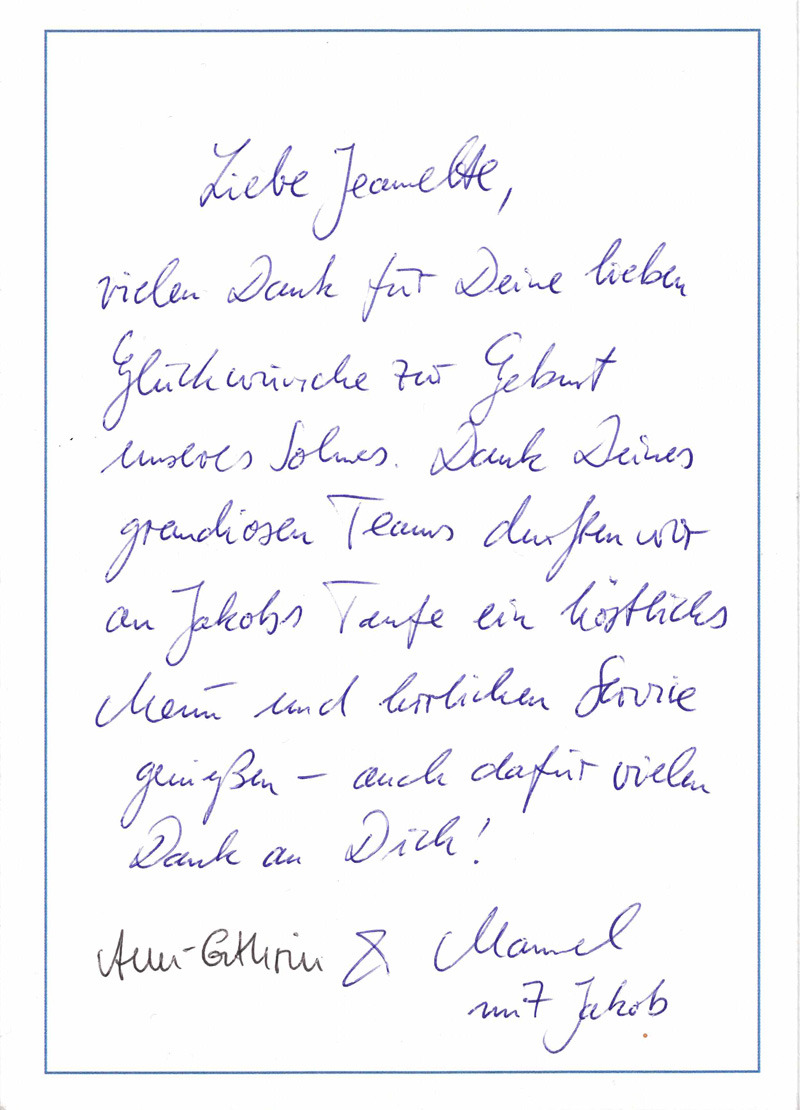 Liebe Jeannette,
vielen Dank für Deine lieben
Glückwünsche zur Geburt
unseres Sohnes. Dank Deines
grandiosen Teams durften wir
an Jakobs Taufe ein köstliches
Menü und herrlichen Service
genießen – auch dafür vielen
Dank an Dich!
Ann-Cathrin & Manuel
mit Jakob